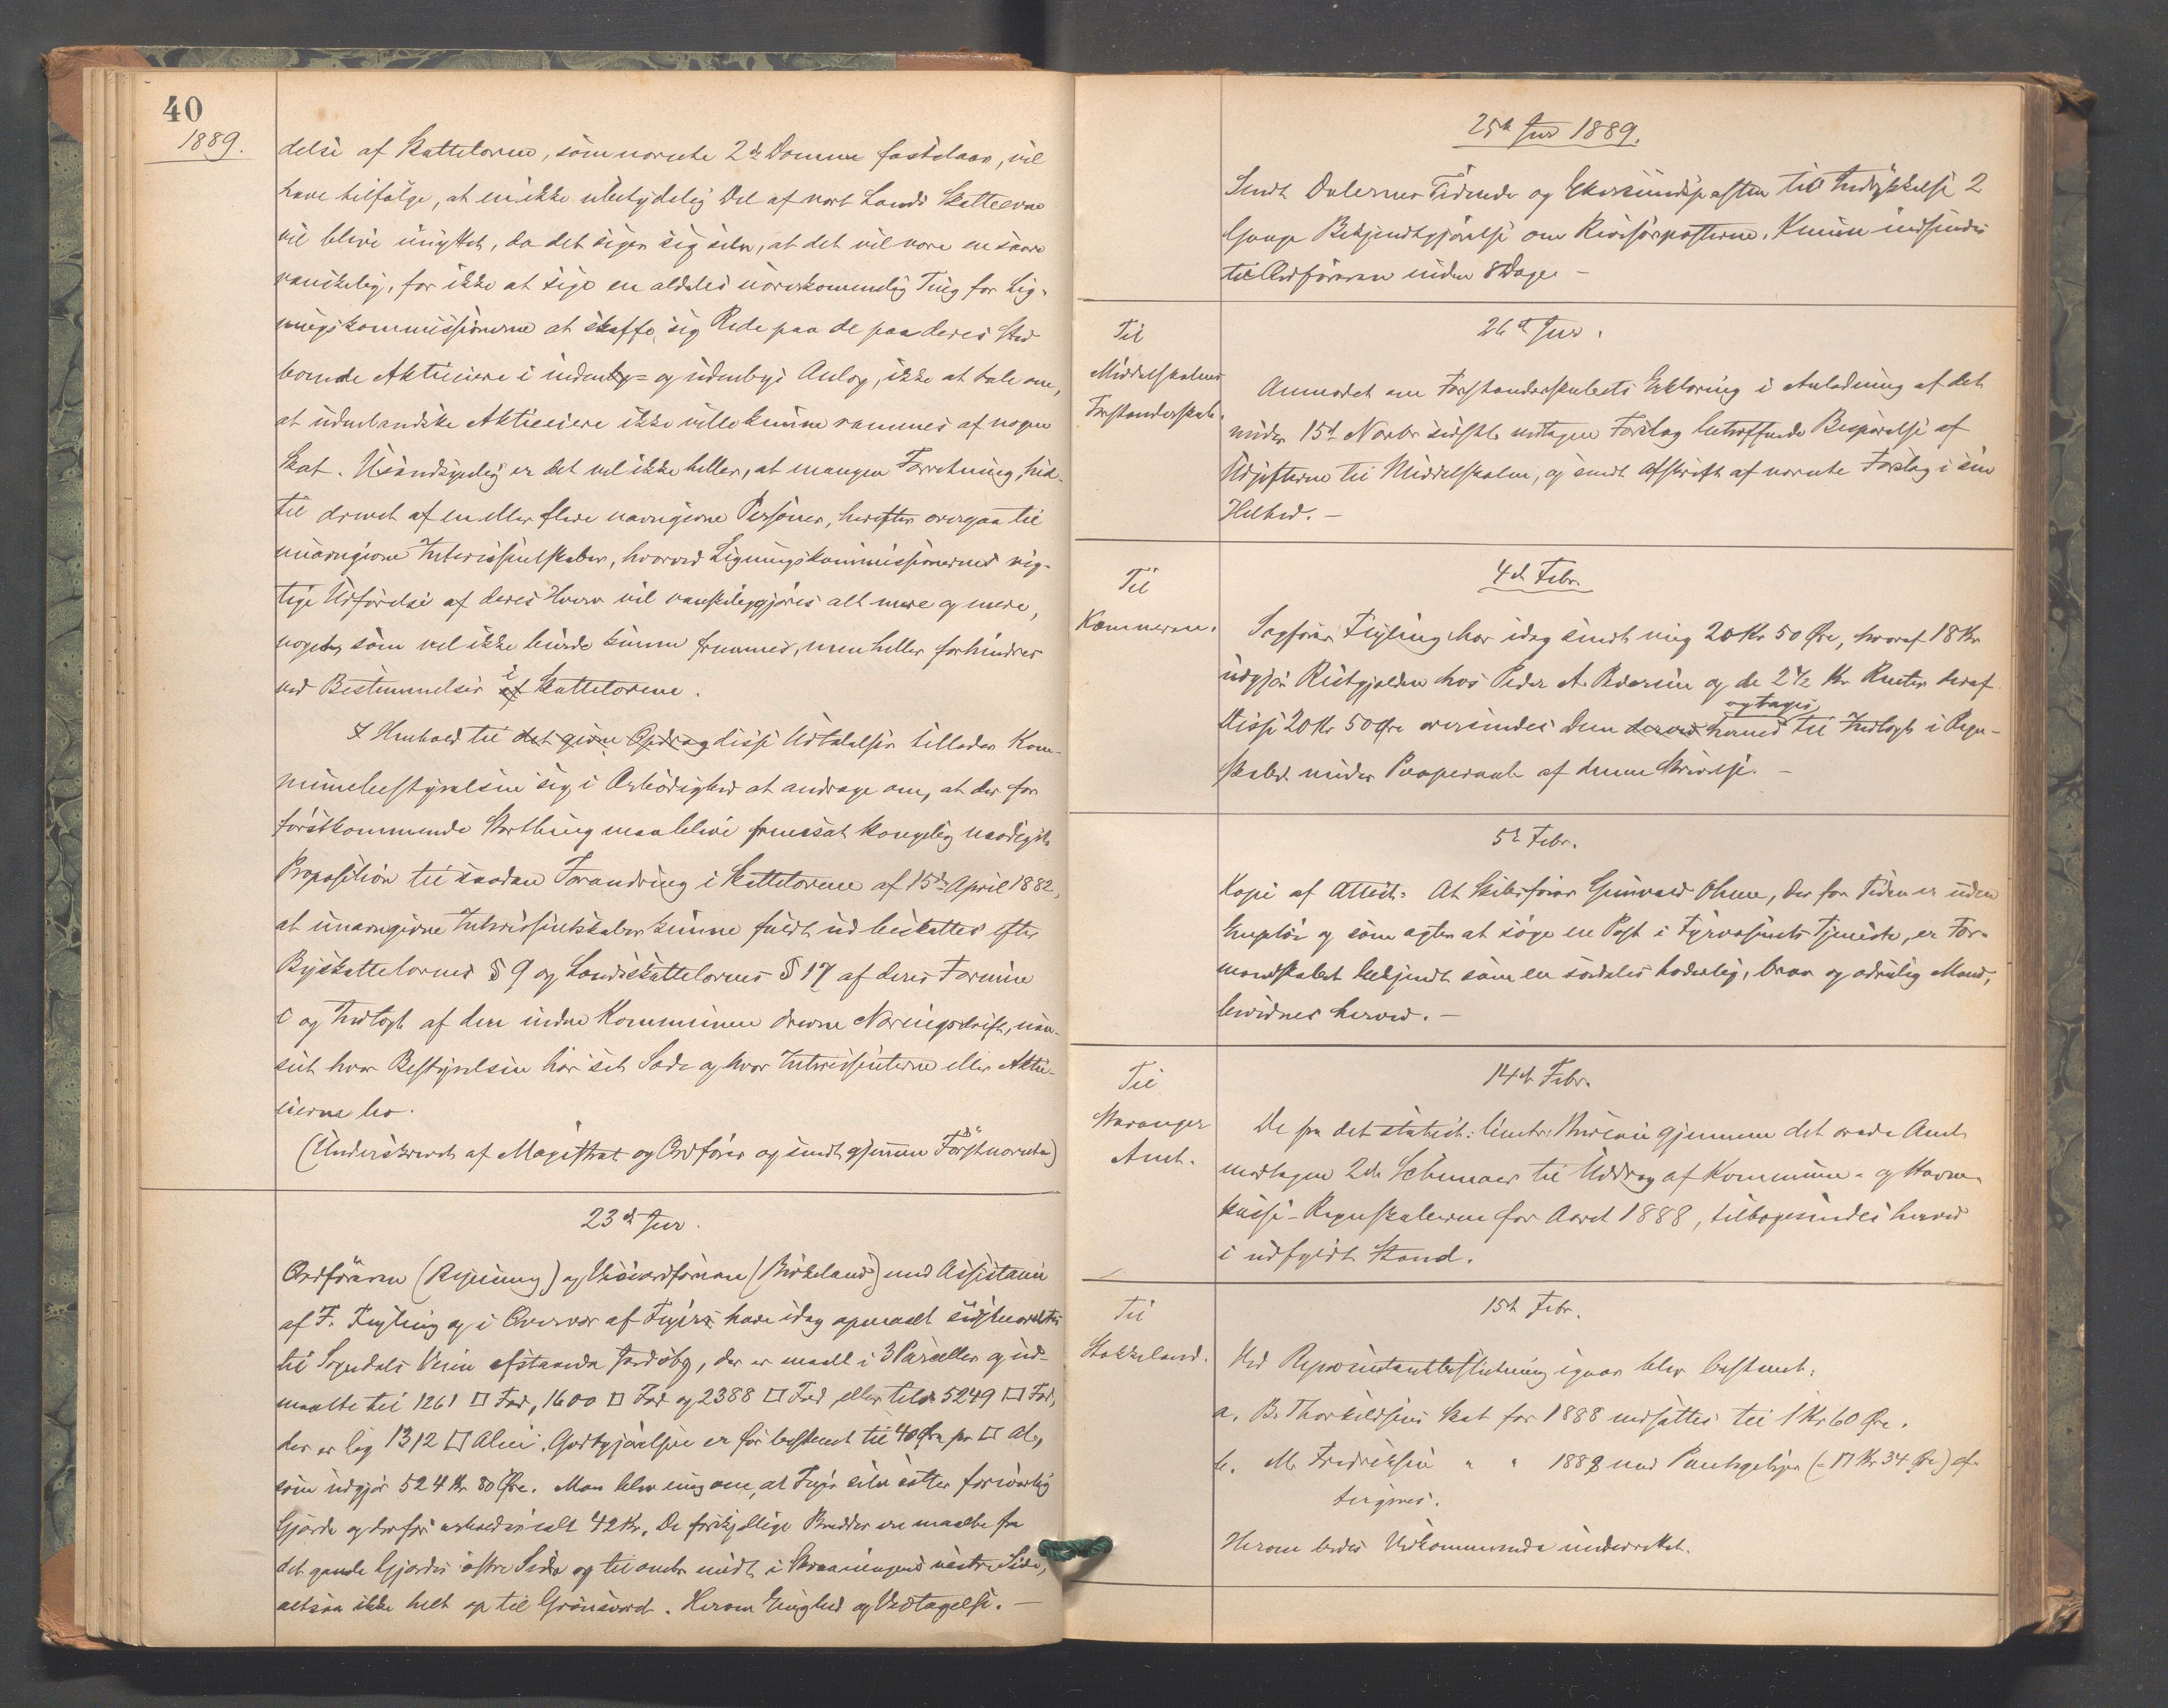 40
1889.
delse af Skattelovene, som nævnte 2de Domme fastslaar, vil
have tilfølge, at en ikke ubetydelig Del af vort Lands Skatteevne
vil blive unyttet, da det siger sig selv, at det vil være en saare
vanskelig, for ikke at sige en aldeles uoverkommelig Ting for Lig-
ningskommissionerne at skaffe sig Rede paa de paa deres Sted
boende Aktieeiere i indenby= og udenbys Anlæg, ikke at tale om,
at udenlandske Aktieeiere ikke ville kunne rammes af nogen
Skat. Usandsynlig er det vel ikke heller, at mangen Forretning, hid-
til drevet af en eller flere navngivne Personer, herefter overgaa til
unavngivne Interessentskaber, hvorved Ligningskommissionernes rig-
tige Udførelse af deres Hverv vil vanskeliggjøres alt mere og mere,
noget, som vel ikke burde kunne fremmes, men heller forhindres
ved Bestemmelser i Skattelovene.
I Henhold til det givne Opdrag disse Udtalelser tillader Kom-
munebestyrelsen sig i Ærbødighed at andrage om, at der for
førstkommende Storthing maa blive fremsat kongelig naadigste
Proposition til saadan Forandring i Skattelovene af 15de April 1882,
at unavngivne Interessentskaber kunne fuldt ud beskattes efter
Byskattelovens § 9 og Landsskattelovens § 17 af deres Formue
i og Indtægt af den inden Kommunen drevne Næringsdrift, uan-
seet hvor Bestyrelsen har sit Sæde og hvor Interessenterne eller Aktie-
eierne bo.
(Underskrevet af Magistrat og Ordfører og sendt gjennem Førstnævnte)
23de Jnr.
Ordføreren (Reymung) og Viceordføreren (Birkeland) med Assistance
af F. Feyling og i Overvær af Feyer have idag opmaalt sidstnævntes
til Sogndals Veien afstaaede Jordsby, der er maalt i 3 Parceller og ud-
maalte til 1261 □ Fod, 1600 □ Fod og 2388 □ Fod, eller tils. 5249 □ Fod,
der er lig 1312 □ Alen. Godtgjørelsen er før bestemt til 40 Øre pr □ Al.,
som udgjør 524 Kr 80 Øre. Man blev enig om, at Feyer selv sætter forsvarlig
Gjerde og derfor erholder ialt 42 Kr. De forskjellige Bredder ere maalte fra
det gamle Gjerdes østre Side og til omtr midt i Skraaningens vestre Side,
altsaa ikke helt op til Grønsvær. Herom Enighed og Vedtagelse. —
25de Jnr 1889.
Sendt Dalernes Tidende og Ekersundsposten til Indrykkelse 2
Gange Bekjendtgjørelse om Revisorposterne. Kunne indsendes
til Ordføreren inden 8 Dage —
Til
Middelskolens
Forstanderskab.
26de Jnr.
Anmodet om Forstanderskabets Erklæring i Anledning af det
under 15de Novbr sidstl. vedtagne Forslag betræffende Besparelse af
Udgifterne til Middelskolen, og sendt Afskrift af nævnte Forslag i sin
Helhed. —
Til
Kæmneren.
4de Febr.
Sagfører Feyling har idag sendt mig 20 Kr 50 Øre, hvoraf 18 Kr
udgjør Restgjælden hos Peder A. Pedersen og de 2 1/2 Kr Renter deraf.
Disse 20 Kr 50 Øre oversendes Dem derved herved til Indtægt i Regn-
optages
skabet under Paaberaab af denne Skrivelse. —
5te Febr.
Kopi af Attest: At Skibsfører Gunvald Olsen, der for Tiden er uden
Emploi og som agter at søge en Post i Fyrvæsenets Tjeneste, er For-
mandskabet bekjendt som en særdeles hæderlig, brav og ædruelig Mand,
bevidnes herved. —
Til
Stavanger
Amt.
14de Febr.
De fra det statist: Centr: Bureau gjennem det ærede Amt
modtagne 2de Schemaer til Uddrag af Kommune- og Havne-
kasse-Regnskaberne for Aaret 1888, tilbagesendes herved
i udfyldt Stand.
Til
Stokkeland.
15de Febr.
Ved Repræsentantbeslutning igaar blev bestemt:
a. B. Thorkildsens Skat for 1888 nedsættes til 1 Kr 60 Øre.
b. M. Fredriksen " " 1888 med Pantegebyr (= 17 Kr 34 Øre) ef-
tergives.
Herom bedes Vedkommende underrettet.